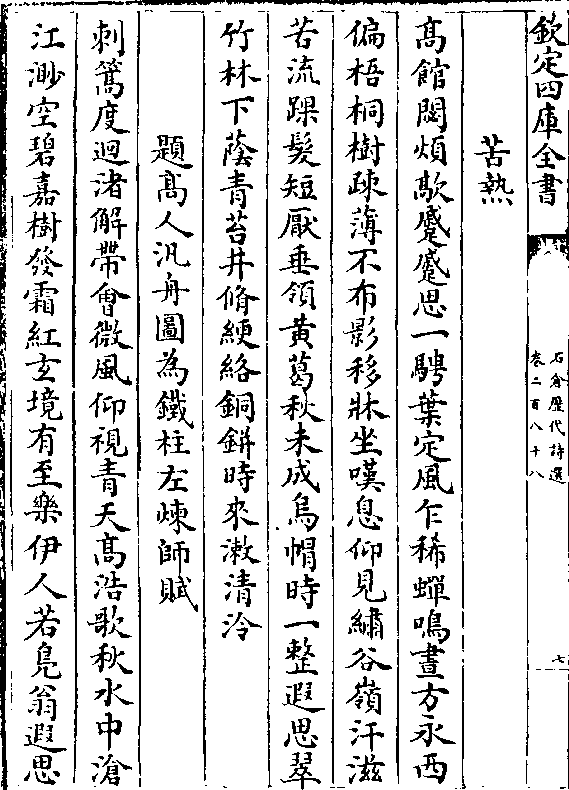 欽定四庫全書
石倉歴代詩選
卷二百八十八
七
苦熱
髙館閟煩歊蹙蹙思一騁葉定風乍稀蟬鳴晝方永西
偏梧桐樹疎薄不布影移牀坐嘆息仰見繡谷嶺汗滋
若流踝髮短厭垂領黄葛秋未成烏㡌時一整遐思翠
竹林下蔭青苔井脩綆絡銅缾時來漱清泠
題髙人汎舟圖為鐵柱左煉師賦
刺篙度迴渚解帶會微風仰視青天髙浩歌秋水中滄
江渺空碧嘉樹發霜紅玄境有至樂伊人若鳧翁遐思